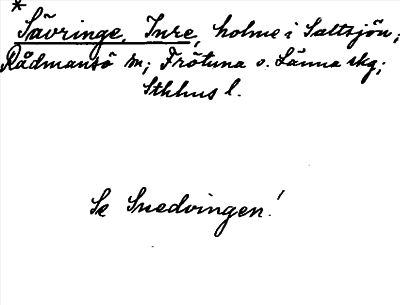 *
Sävringe, Inre, holme i Saltsjön;
Rådmansö sn; Frötuna o. Länna skg;
Sthlms l.
Se Snedvingen!